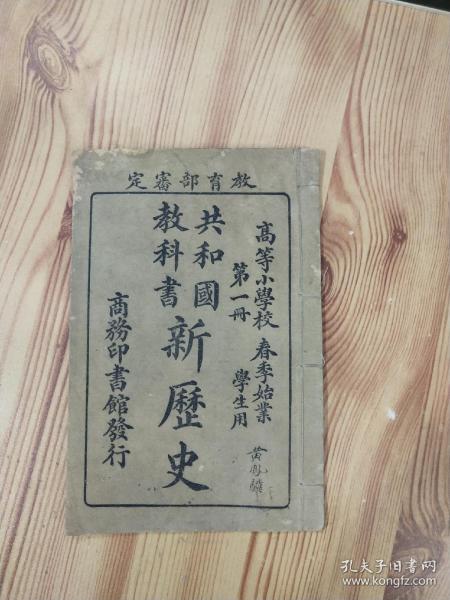 教育部審定
高等小學校 春季始業
第一冊 學生用
共和國
教科書
新歷史
商務印書館發行
黃鳳
孔夫子旧书网
www.kongfz.com